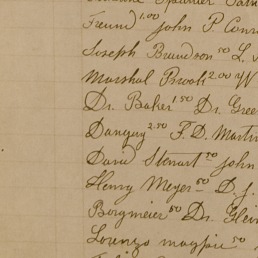 Freund 1.00 John P. Conr
Joseph Brandson 50 L. v
Marshal Brook 2.00 W
Dr. Baker 1.50 Dr. Gree
Danguy 2.50 F. D. Martin
David Stewart 50 John
Henry Meyer 50 D. J.
Borgmeier 50 Dr. Glei
Lorenzo Magpie 50